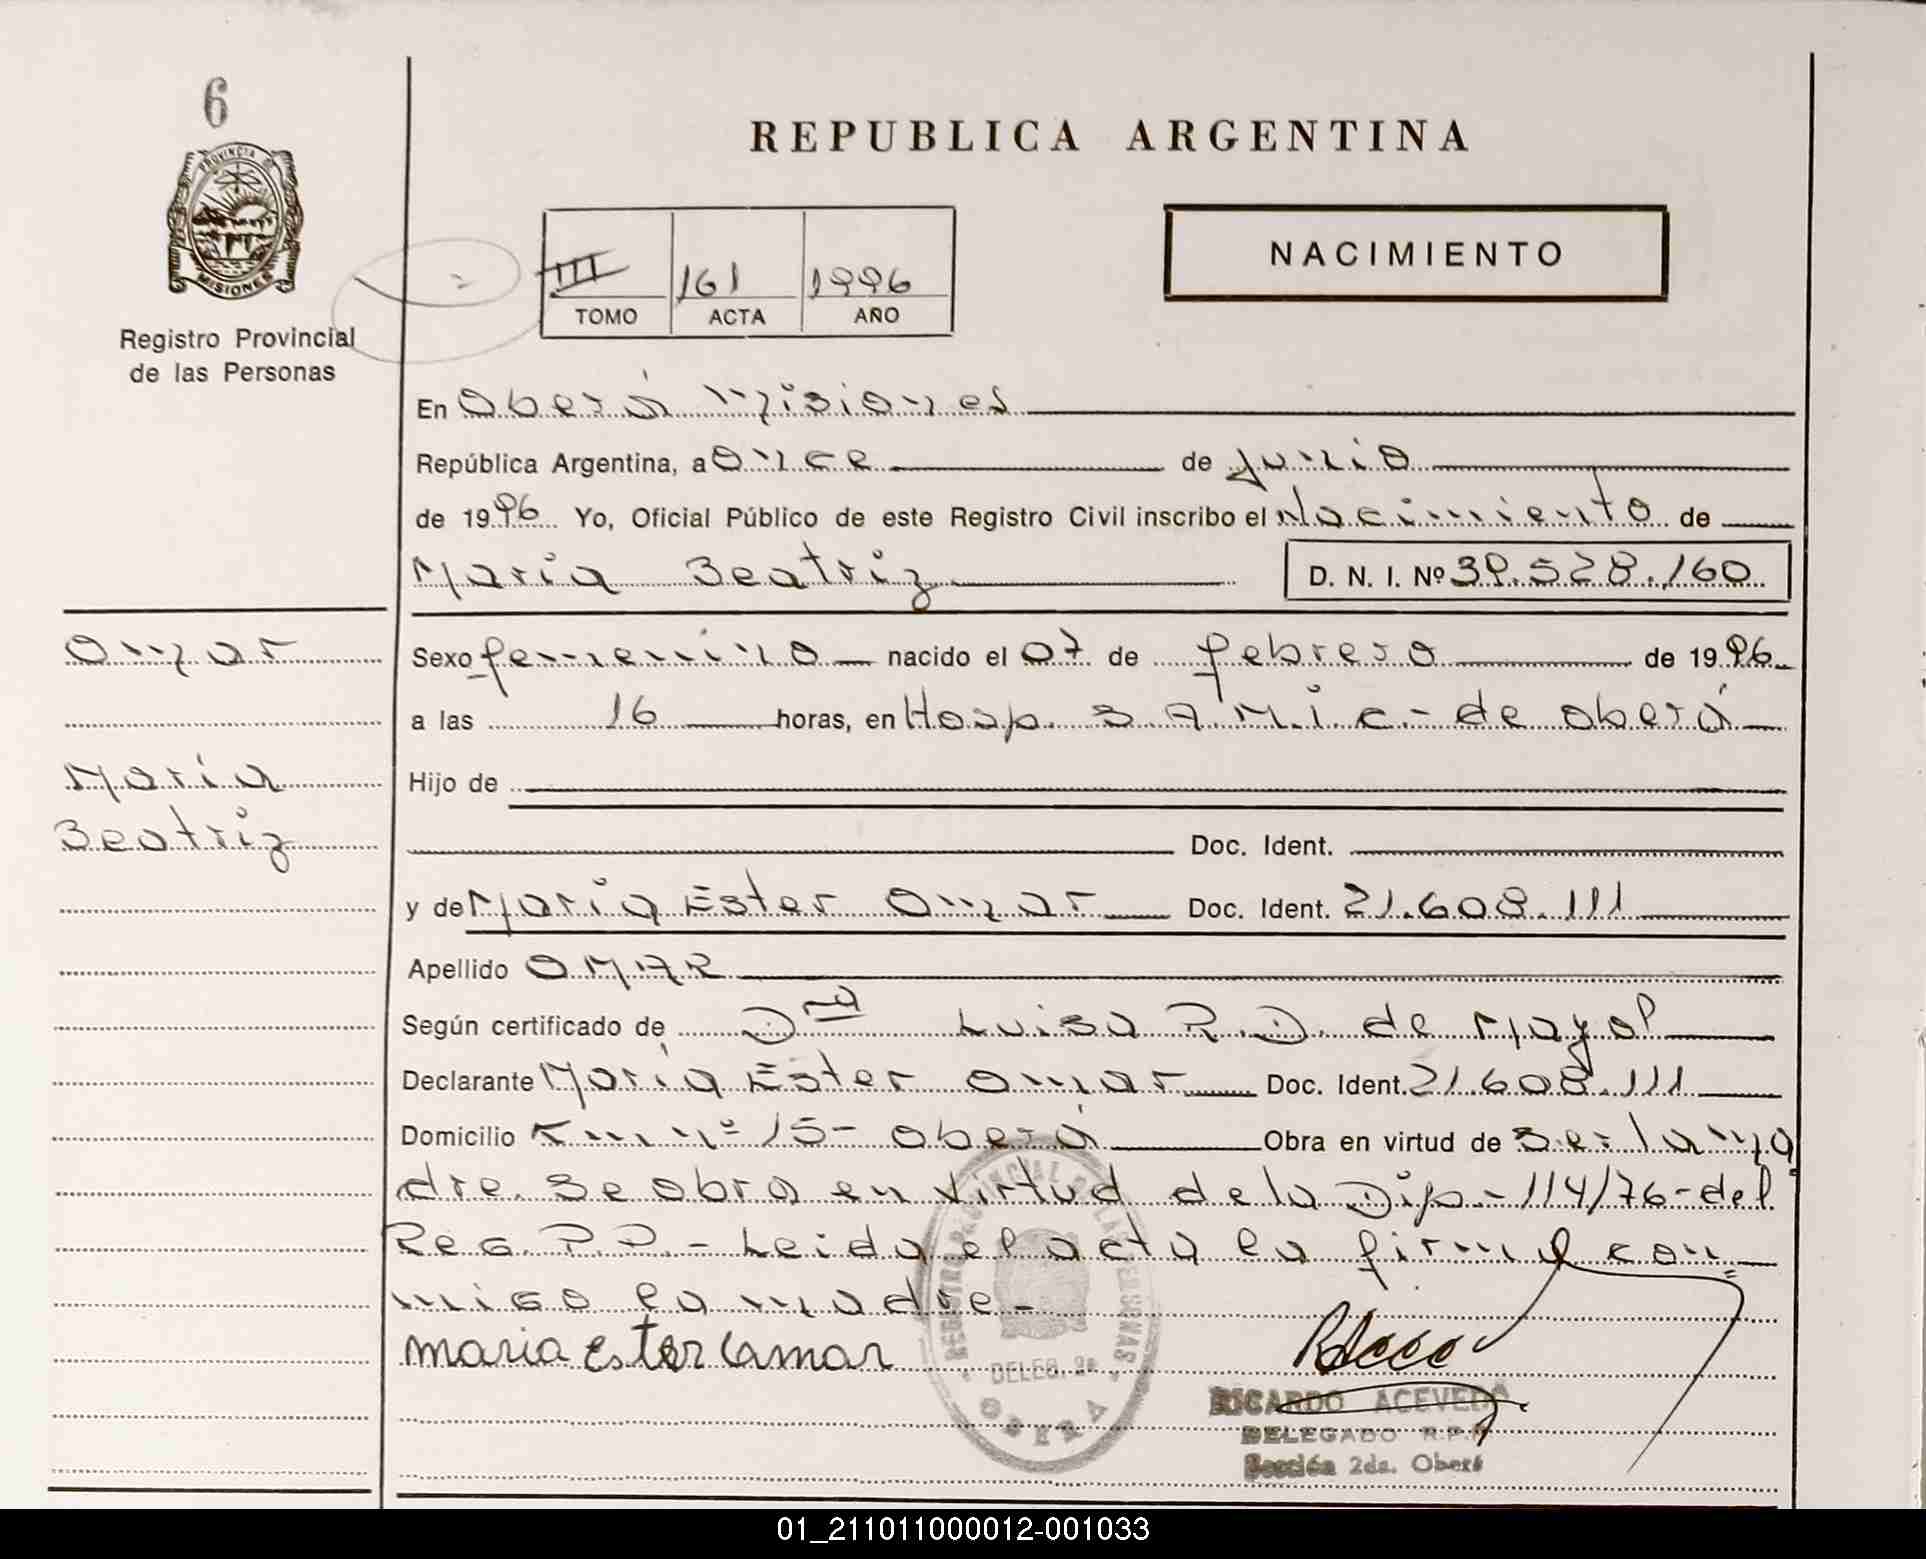 6
PROVINCIA DE
MISIONES
Registro Provincial
de las Personas
REPUBLICA ARGENTINA
NACIMIENTO
III 161 1996
TOMO ACTA AÑO
En Oberá Misiones
República Argentina, a Once de junio
de 1996 Yo, Oficial Público de este Registro Civil inscribo el Nacimiento de
María Beatriz D. N. I. Nº 39.528.160
Omar
Sexo femenino nacido el 07 de febrero de 1996
a las 16 horas, en Hosp. S A M.i.c.- de oberá
María
Hijo de
Beatriz
Doc. Ident.
y de María Ester Omar Doc. Ident. 21.608.111
Apellido OMAR
Según certificado de Dra Luisa R.D. de Mayol
Declarante María Ester Omar Doc. Ident. 21.608.111
Domicilio Km nº 15- oberá Obra en virtud de ser la ma
dre. Se obra en virtud de la Dip.- 114/76- del
Reg. P.P.- Leida el acta la firma con
migo la madre-
maria Ester Omar
REGISTRO PROVINCIAL DE LAS PERSONAS
DELEG. 2a
OBERA
RICARDO ACEVEDO
DELEGADO R.P.P
Sección 2da. Oberá
01_211011000012-001033